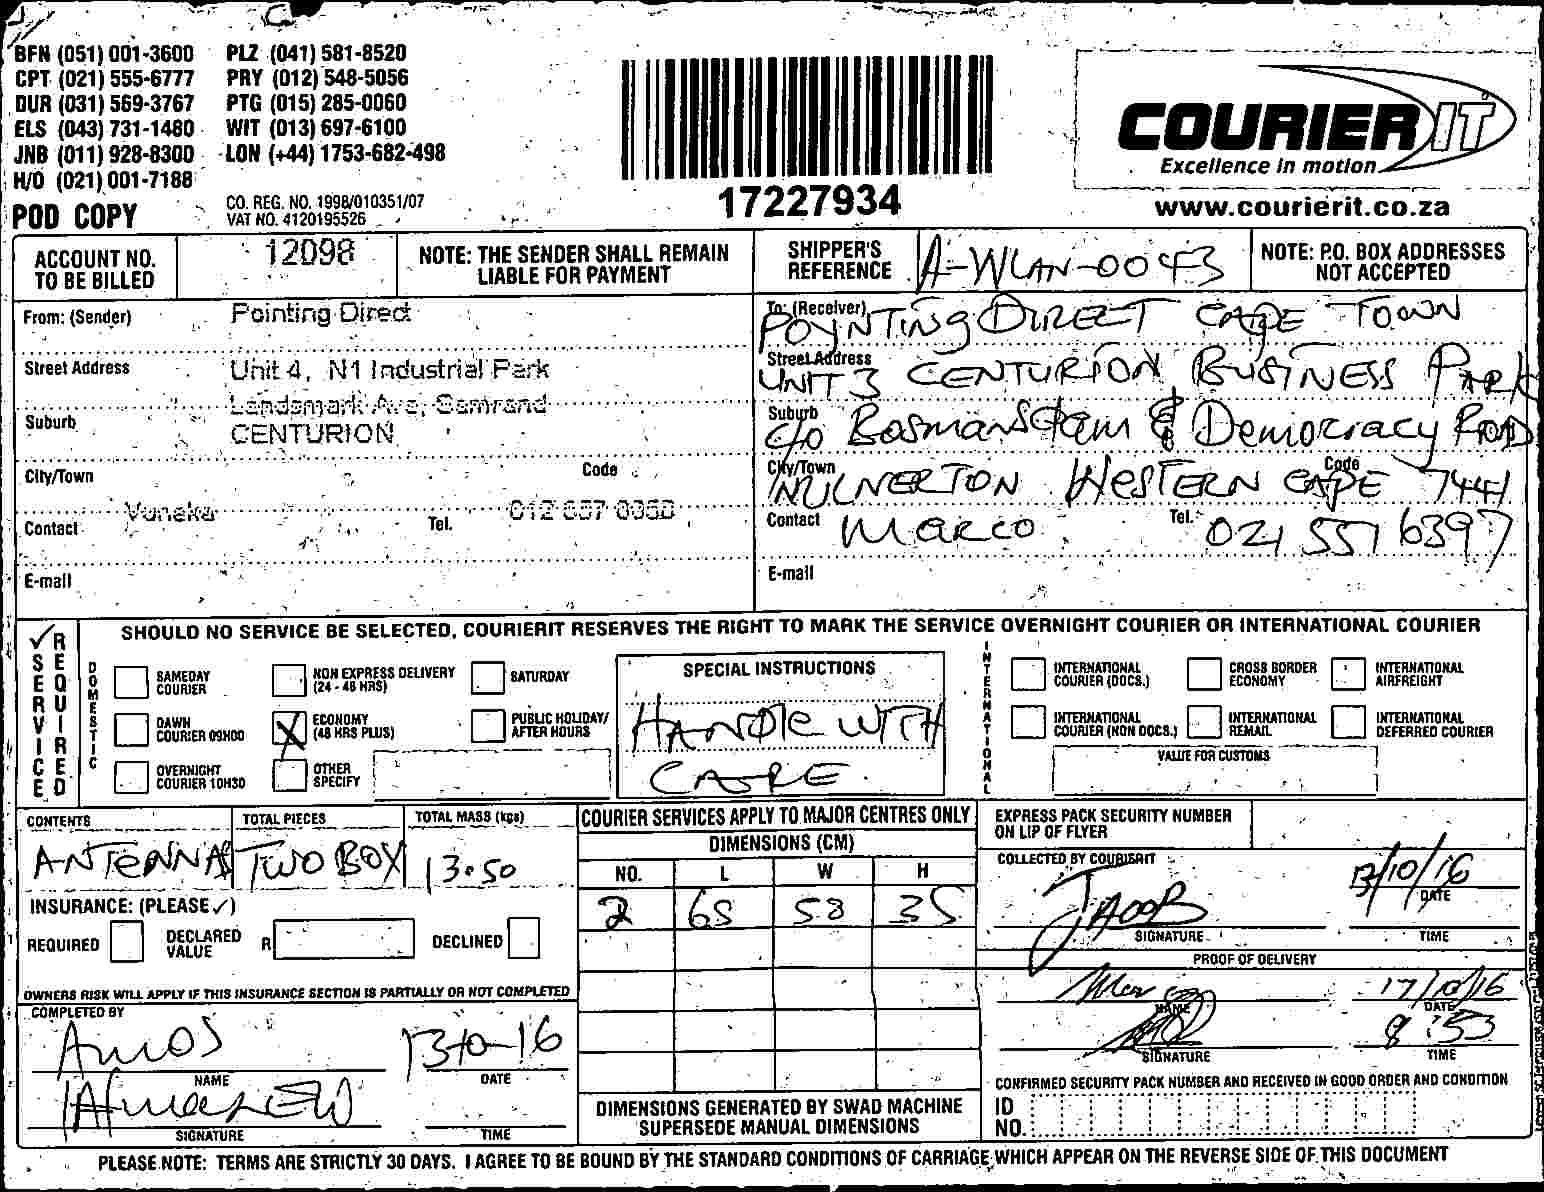 BFN (051) 001-3600 PLZ (041) 581-8520
CPT (021) 555-6777 PRY (012) 548-5056
DUR (031) 569-3767 PTG (015) 285-0060
ELS (043) 731-1480 WIT (013) 697-6100
JNB (011) 928-8300 LON (+44) 1753-682-498
H/O (021) 001-7188
CO. REG. NO. 1998/010351/07
VAT NO. 4120195526
POD COPY
17227934
COURIER IT
Excellence in motion
www.courierit.co.za
ACCOUNT NO. TO BE BILLED 12098
NOTE: THE SENDER SHALL REMAIN LIABLE FOR PAYMENT
SHIPPER'S REFERENCE A-WLAN-0043
NOTE: P.O. BOX ADDRESSES NOT ACCEPTED
From: (Sender) Pointing Direct
Street Address Unit 4, N1 Industrial Park
Landsmark Ave, Samrand
Suburb CENTURION
City/Town Code
Contact Vuneka Tel. 012 657 0050
E-mail
To: (Receiver) POYNTING DIRECT CAPE TOWN
Street Address UNIT 3 CENTURION BUSINESS PARK
Suburb c/o Bosmansdam & Democracy ROAD
City/Town MILNERTON WESTERN CAPE Code 7441
Contact MARCO Tel. 021 551 6397
E-mail
SERVICE REQUIRED
SHOULD NO SERVICE BE SELECTED, COURIERIT RESERVES THE RIGHT TO MARK THE SERVICE OVERNIGHT COURIER OR INTERNATIONAL COURIER
DOMESTIC
SAMEDAY COURIER
NON EXPRESS DELIVERY (24 - 48 HRS)
SATURDAY
DAWN COURIER 09H00
X ECONOMY (48 HRS PLUS)
PUBLIC HOLIDAY/ AFTER HOURS
OVERNIGHT COURIER 10H30
OTHER SPECIFY
SPECIAL INSTRUCTIONS
HANDLE WITH
CARE.
INTERNATIONAL
INTERNATIONAL COURIER (DOCS.)
CROSS BORDER ECONOMY
INTERNATIONAL AIRFREIGHT
INTERNATIONAL COURIER (NON DOCS.)
INTERNATIONAL REMAIL
INTERNATIONAL DEFERRED COURIER
VALUE FOR CUSTOMS
CONTENTS TOTAL PIECES TOTAL MASS (kgs)
ANTENNAS TWO BOX 13.50
INSURANCE: (PLEASE ✓)
REQUIRED DECLARED VALUE R DECLINED
OWNERS RISK WILL APPLY IF THIS INSURANCE SECTION IS PARTIALLY OR NOT COMPLETED
COMPLETED BY
AMOS 13-10-16
NAME DATE
SIGNATURE TIME
COURIER SERVICES APPLY TO MAJOR CENTRES ONLY
DIMENSIONS (CM)
NO. L W H
2 65 53 35
DIMENSIONS GENERATED BY SWAD MACHINE SUPERSEDE MANUAL DIMENSIONS
EXPRESS PACK SECURITY NUMBER ON LIP OF FLYER
COLLECTED BY COURIERIT
JACOB 13/10/16
DATE
SIGNATURE TIME
PROOF OF DELIVERY
17/10/16
NAME DATE
8:53
SIGNATURE TIME
CONFIRMED SECURITY PACK NUMBER AND RECEIVED IN GOOD ORDER AND CONDITION
ID NO.
PLEASE NOTE: TERMS ARE STRICTLY 30 DAYS. I AGREE TO BE BOUND BY THE STANDARD CONDITIONS OF CARRIAGE WHICH APPEAR ON THE REVERSE SIDE OF THIS DOCUMENT